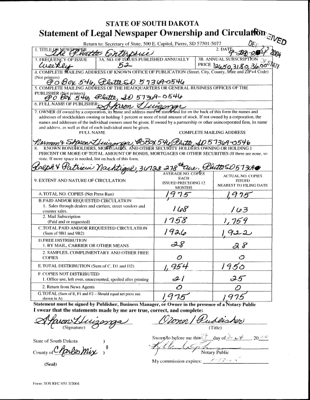 STATE OF SOUTH DAKOTA
Statement of Legal Newspaper Ownership and Circulation
Return to: Secretary of State, 500 E. Capitol, Pierre, SD 57501-5077
1. TITLE OF NEWSPAPER
2. DATE
The Platte Enterprise
3. FREQUENCY OF ISSUE
3A. NO. OF ISSUES PUBLISHED ANNUALLY
3B. ANNUAL SUBSCRIPTION
Weekly
52
PRICE
4. COMPLETE MAILING ADDRESS OF KNOWN OFFICE OF PUBLICATION (Street, City, County, State and ZIP+4 Code)
(Not printers)
PO Box 546, Platte SD 57369-0546
5. COMPLETE MAILING ADDRESS OF THE HEADQUARTERS OR GENERAL BUSINESS OFFICES OF THE
PUBLISHER (Not printers)
PO Box 546, Platte, SD 57369-0546
6. FULL NAME OF PUBLISHER Sharon Huizenga
7. OWNER (If owned by a corporation, its name and address must be
addresses of stockholders owning or holding 1 percent or more of total amount of stock. If not owned by a corporation, the
names and addresses of the individual owners must be given. If owned by a partnership or other unincorporated firm, its name
and address, as well as that of each individual must be given.
FULL NAME
COMPLETE MAILING ADDRESS
Sharon Huizenga, PO Box 546, Platte, SD 57369-0546
8. KNOWN BONDHOLDERS, MORTGAGEES, AND OTHER SECURITY HOLDERS OWNING OR HOLDING 1
PERCENT OR MORE OF TOTAL AMOUNT OF BONDS, MORTGAGES OR OTHER SECURITIES (If there are none, so
state. If more space is needed, list on back of this form.
9. EXTENT AND NATURE OF CIRCULATION
AVERAGE NO. COPIES
EACH
ISSUES PRECEDING 12
MONTHS
ACTUAL NO. COPIES
ISSUED
NEAREST TO FILING DATE
A. TOTAL NO. COPIES (Net Press Run)
1975
1975
B. PAID AND/OR REQUESTED CIRCULATION
1. Sales through dealers and carriers, street vendors and
counter sales.
168
163
2. Mail Subscription
(Paid and/or requested)
1758
1,759
C. TOTAL PAID AND/OR REQUESTED CIRCULATION
(Sum of 9B1 and 9B2)
1926
1,922
D. FREE DISTRIBUTION
1. BY MAIL, CARRIER OR OTHER MEANS
28
28
2. SAMPLES, COMPLIMENTARY AND OTHER FREE
COPIES
0
0
E. TOTAL DISTRIBUTION (Sum of C, D1 and D2)
1,954
1950
F. COPIES NOT DISTRIBUTED
1. Office use, left over, unaccounted, spoiled after printing
21
25
2. Return from News Agents
0
0
G. TOTAL (Sum of E, F1 and F2 - Should equal net press run
shown in A)
1,975
1975
Statement must be signed by Publisher, Business Manager, or Owner in the presence of a Notary Public
I swear that the statements made by me are true, correct, and complete:
Sharon Huizenga
Owner / Publisher
(Signature)
(Title)
State of South Dakota )
Sworn to before me this
day of
County of Charles Mix )
Notary Public
(Seal)
My commission expires: